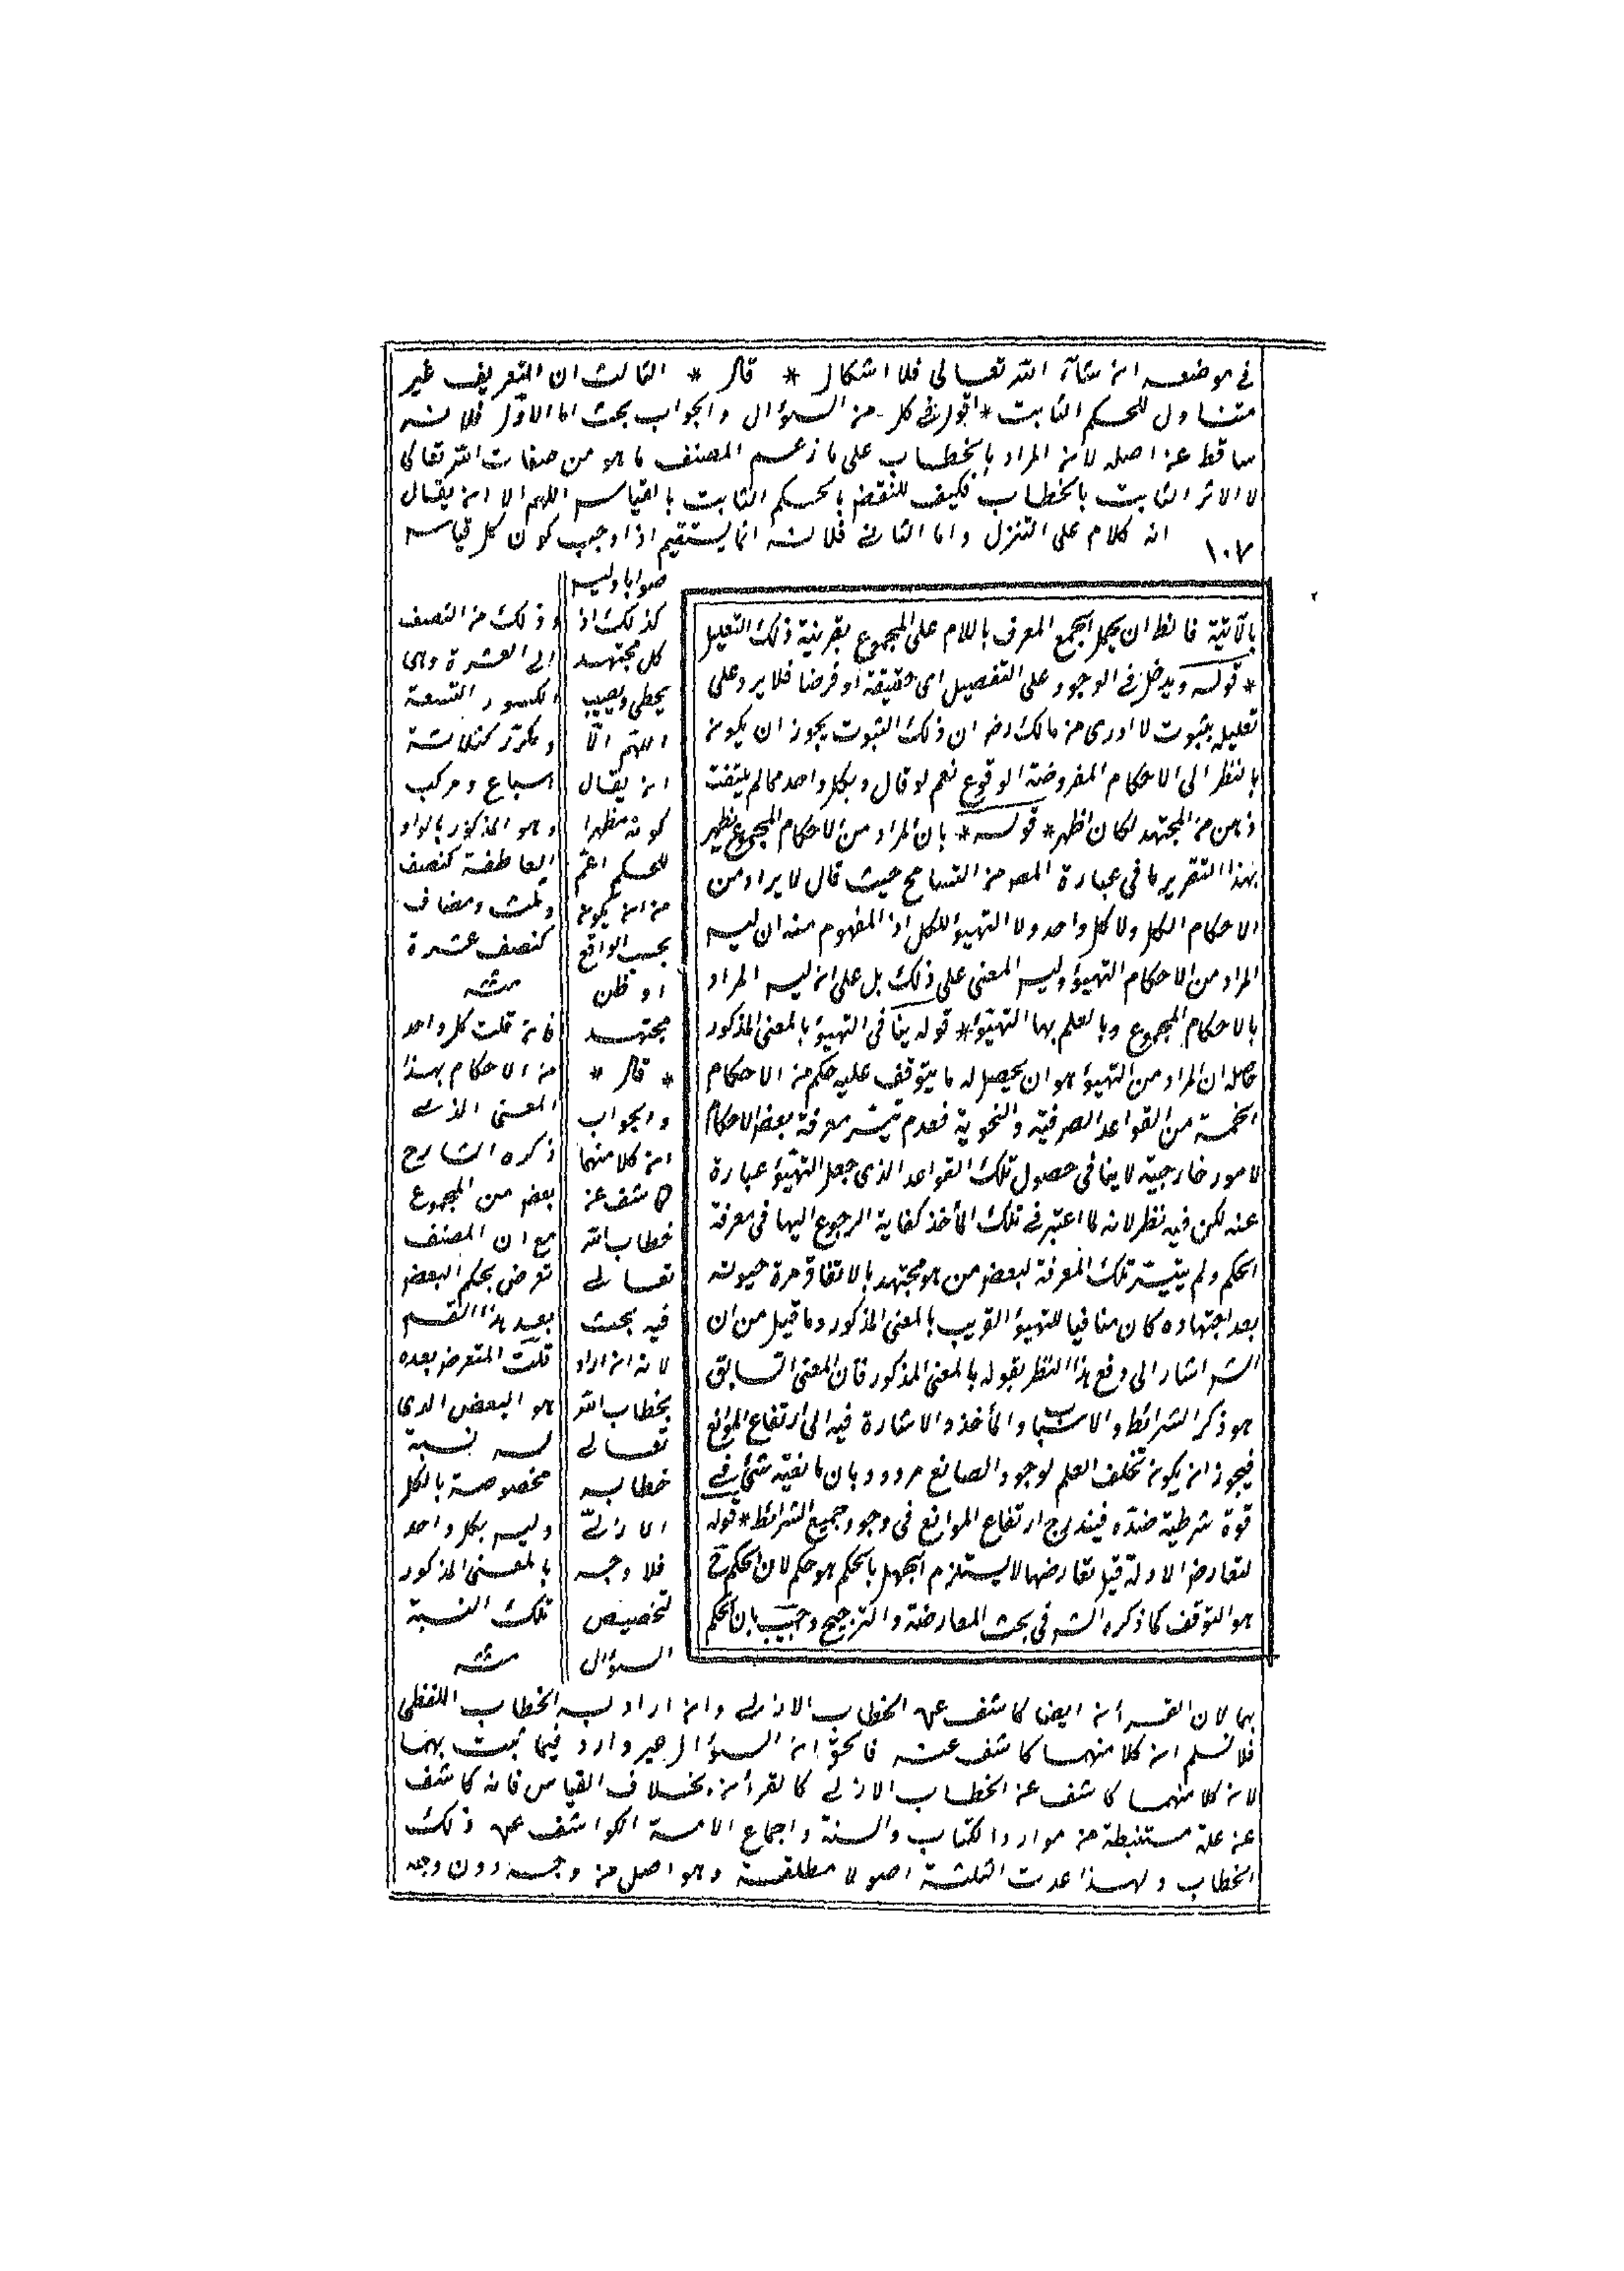 في موضعه ان شاء الله تعالى فلا اشكال * قال * الثالث ان التعريف غير
متناول للحكم الثابت * اقول في كل من السؤال والجواب بحث اما الاول فلانه
ساقط عن اصله لان المراد بالخطاب على ما زعم المصنف ما هو من صفات الله تعالى
لا الاثر الثابت بالخطاب فكيف للنقض بالحكم الثابت بالقياس اللهم الا ان يقال
١٠٧ انه كلام على التنزل واما الثاني فلانه انما يستقيم اذا وجب كون كل قياس
صوابا وليس
كذلك اذ
كل مجتهد
يخطي ويصيب
اللهم الا
ان يقال
كونه مظهرا
للحكم اعم
من ان يكون
بحسب الواقع
او ظن
مجتهد
* قال *
والجواب
ان كلا منهما
كاشف عن
خطاب الله
تعالى
فيه بحث
لانه ان اراد
بخطاب الله
تعالى
خطابه
الازلي
فلا وجه
لتخصيص
السؤال
بهما لان القرأن ايضا كاشف عن الخطاب الازلي وان اراد به الخطاب اللفظي
فلا نسلم ان كلا منهما كاشف عنه فالحق ان السؤال غير وارد فيما ثبت بهما
لان كلا منهما كاشف عن الخطاب الازلي كالقرأن بخلاف القياس فانه كاشف
عن علة مستنبطة من موارد الكتاب والسنة واجماع الامة الكواشف عن ذلك
الخطاب ولهذا عدت الثلثة اصولا مطلقة وهو اصل من وجه دون وجه
بالآتية فالظ ان يحمل الجمع المعرف باللام على المجموع بقرينة ذلك التعليل
* قوله ويدخل في الوجود على التفصيل اى حقيقة او فرضا فلا يرد على
تعليله بثبوت لا ادرى من مالك رضـ ان ذلك الثبوت يجوز ان يكون
بالنظر الى الاحكام المفروضة الوقوع نعم لو قال وبكل واحد مما لم يلتفت
ذهن من المجتهد لكان اظهر * قوله * بان المراد من الاحكام المجموع يظهر
بهذا التقرير ما في عبارة المص من التسامح حيث قال لا يراد من
الاحكام الكل ولا كل واحد ولا التهيؤ للكل اذ المفهوم منه ان ليس
المراد من الاحكام التهيؤ وليس المعنى على ذلك بل على ان ليس المراد
بالاحكام المجموع وبالعلم بها التهيؤ * قوله ينافي التهيؤ بالمعنى المذكور
حاصله ان المراد من التهيؤ هو ان يحصل له ما يتوقف عليه حكم من الاحكام
الخمسة من القواعد الصرفية والنحوية فعدم تيسر معرفة بعض الاحكام
لامور خارجية لا ينافي حصول تلك القواعد الذى جعل التهيؤ عبارة
عنه لكن فيه نظر لانه لما اعتبر في تلك المأخذ كفاية الرجوع اليها في معرفة
الحكم ولم يتيسر تلك المعرفة لبعض من هو مجتهد بالاتفاق مدة حيوته
بعد اجتهاده كان منافيا للتهيؤ القريب بالمعنى المذكور وما قيل من ان
الشـ اشار الى دفع هذا النظر بقوله بالمعنى المذكور فان المعنى السابق
هو ذكر الشرائط والاسباب والمأخذ والاشارة فيه الى ارتفاع الموانع
فيجوز ان يكون تخلف العلم لوجود المانع مردود بان مانعية شئ في
قوة شرطية ضده فيندرج ارتفاع الموانع في وجود جميع الشرائط * قوله
لتعارض الادلة قيل تعارضها لا يستلزم الجهل بالحكم هو حكم لان الحكم ح
هو التوقف كما ذكره الشـ في بحث المعارضة والترجيح واجيب بان الحكم
وذلك من النصف
الى العشرة وهي
الكسور التسعة
ومكرر كثلاثة
اسباع ومركب
وهو المذكور بالواو
العاطفة كنصف
وثلث ومضاف
كنصف عشرة
منه
فان قلت كل واحد
من الاحكام بهذا
المعنى الذي
ذكره الشارح
بعض من المجموع
مع ان المصنف
تعرض بحكم البعض
بعيد هذا القسم
قلت المتعرض بعده
هو البعض الذى
له نسبة
مخصوصة بالكل
وليس بكل واحد
بالمعنى المذكور
تلك النسبة
منه